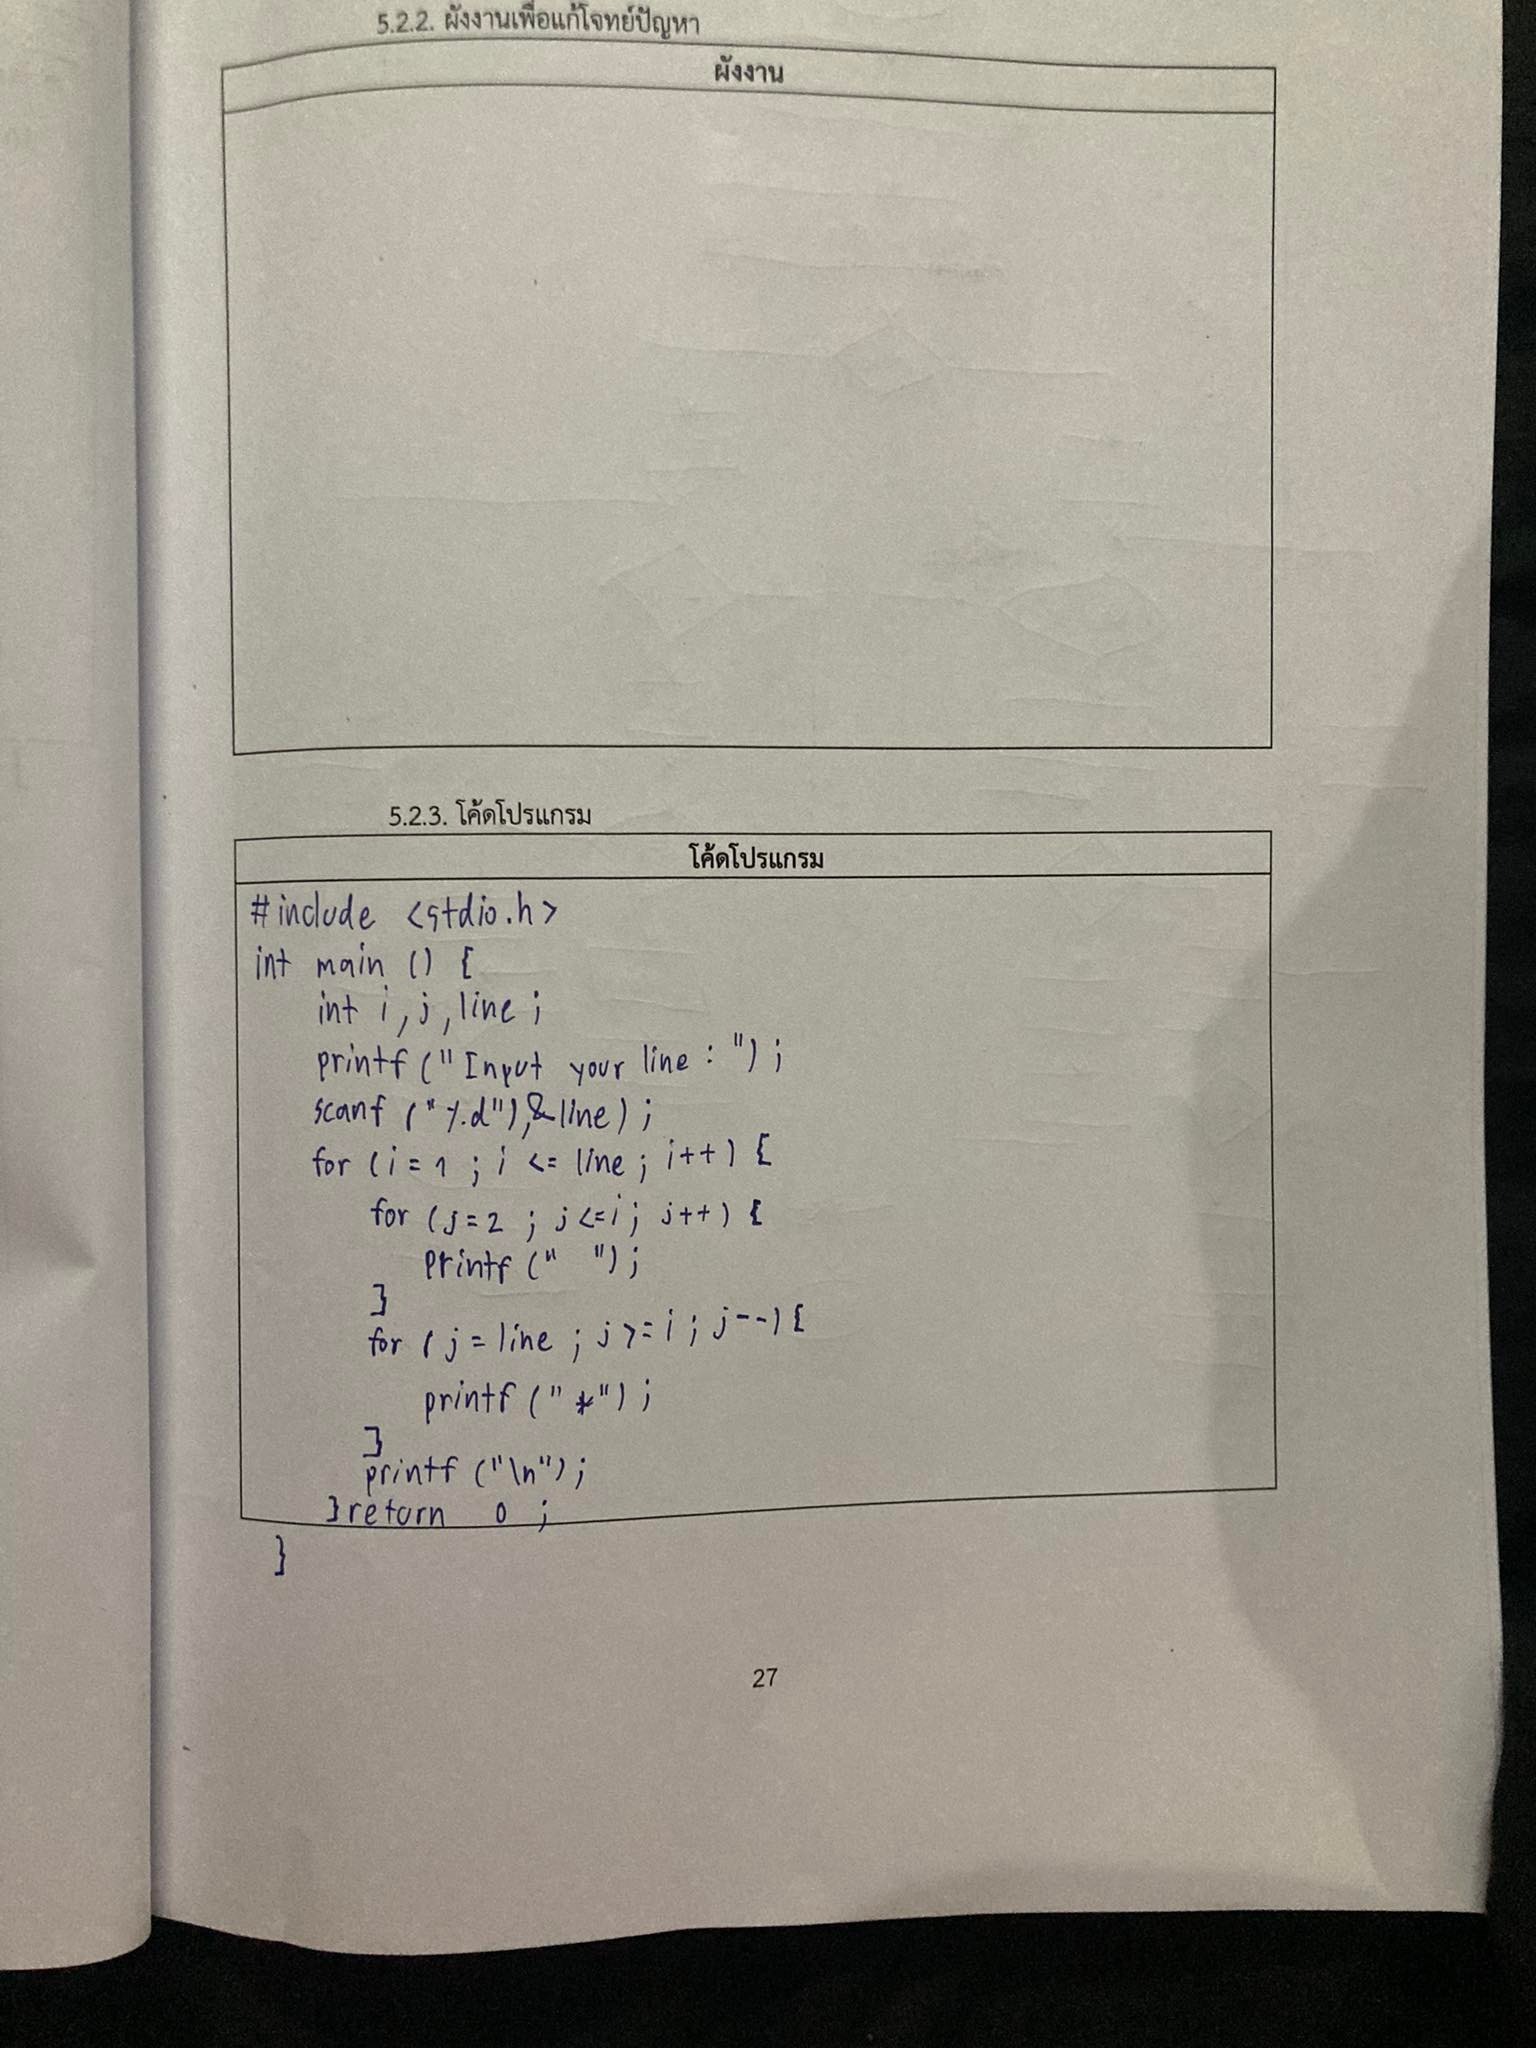 5.2.2. ผังงานเพื่อแก้โจทย์ปัญหา
ผังงาน
5.2.3. โค้ดโปรแกรม
โค้ดโปรแกรม
#include <stdio.h>
int main () {
int i, j, line ;
printf ("Input your line : ") ;
scanf ("%d"),&line) ;
for (i = 1 ; i <= line ; i++) {
for (j=2 ; j <=i ; j++) {
printf (" ") ;
}
for (j = line ; j >= i ; j--) {
printf ("*") ;
}
printf ("\n") ;
}return 0 ;
}
27